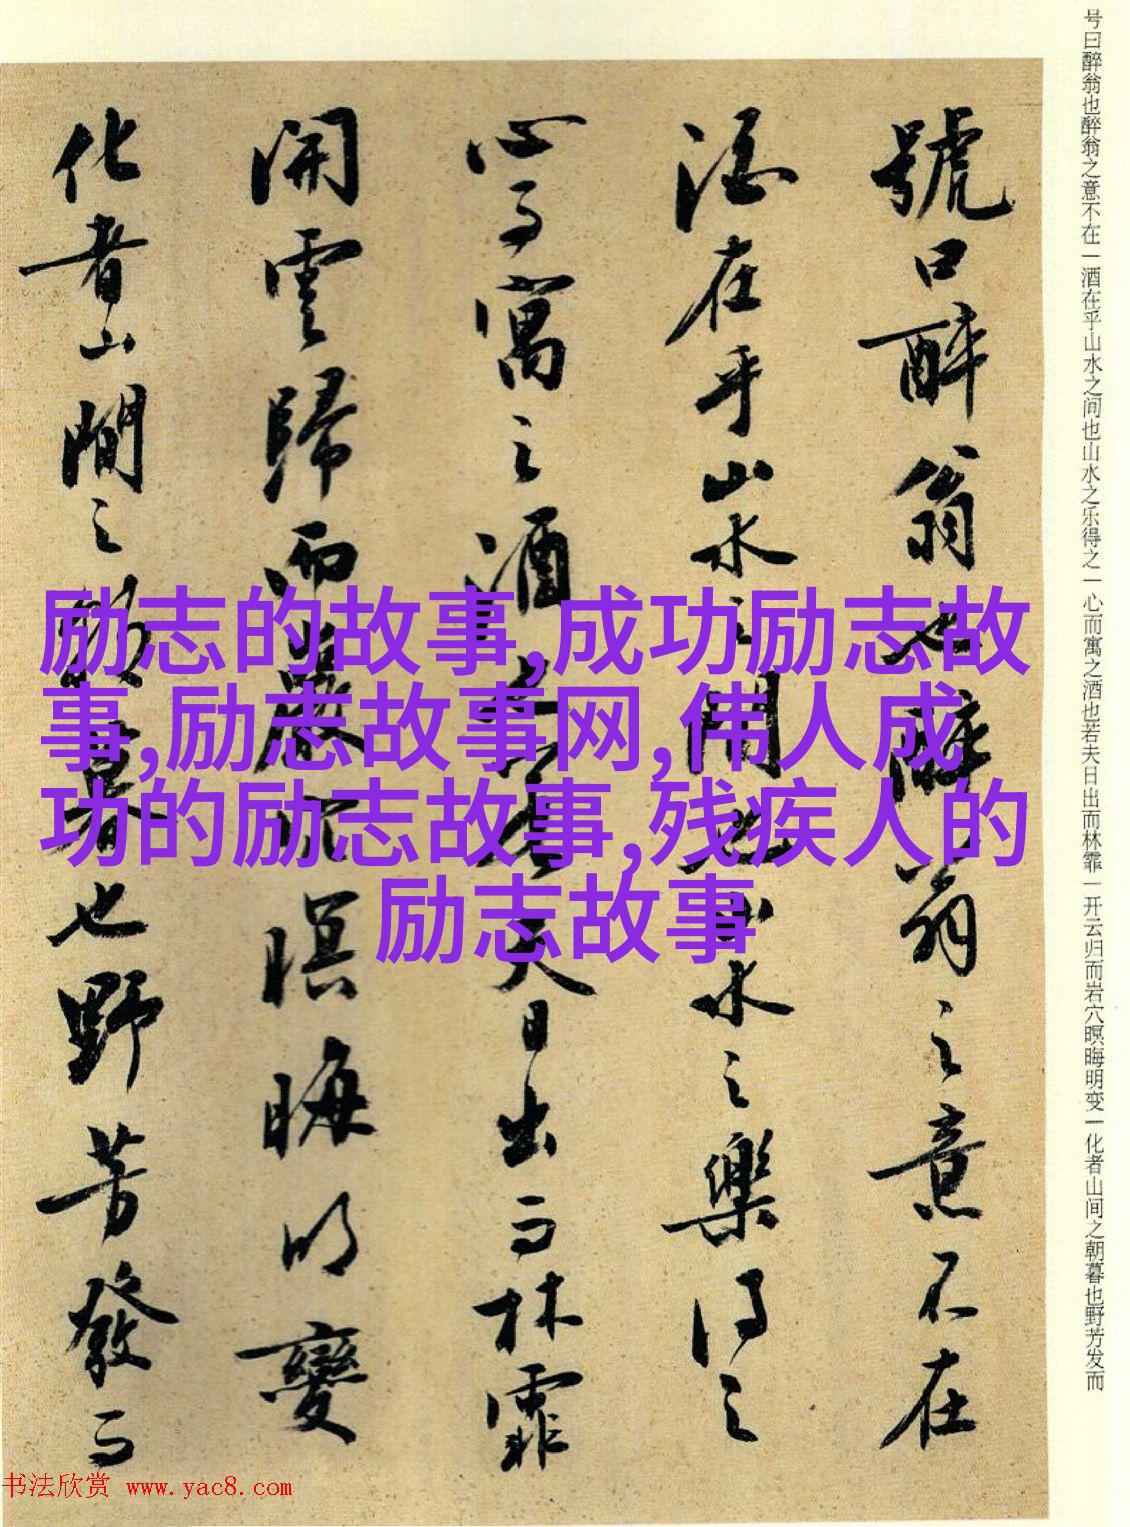 号曰醉翁也醉翁之意不在一酒在乎山水之间也山水之乐得之一心而寓之酒也若夫日出而林霏一开云归而岩穴暝晦明变一化者山间之朝暮也野芳发而
號曰醉翁也醉翁之意不在
酒在乎山水之間也山水之樂得之
心而寓之酒也若夫日出而林霏
開雲歸而巖穴暝晦明變
化者山間之朝暮也野芳發而
励志的故事,成功励志故
事,励志故事网,伟人成
功的励志故事,残疾人的
励志故事
书法欣赏 www.yac8.com